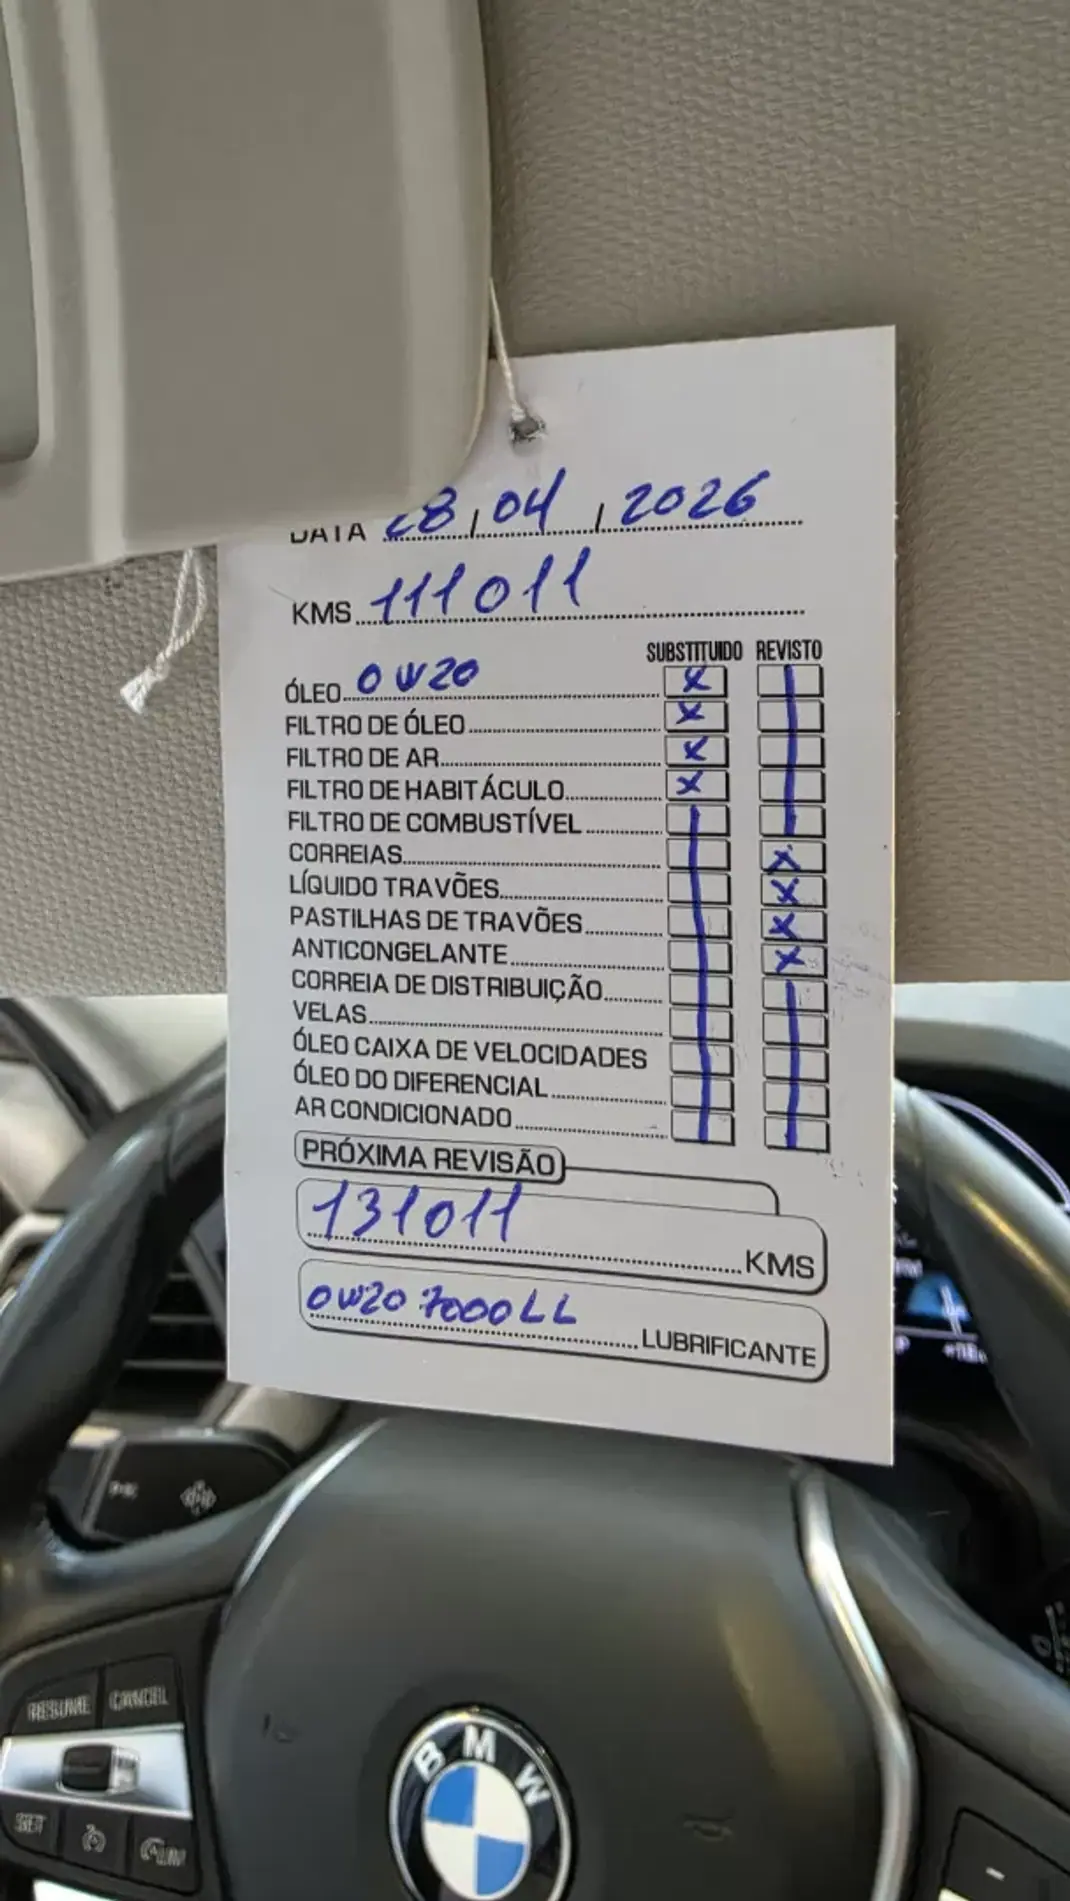 DATA 28 / 04 / 2026
KMS 111011
SUBSTITUIDO REVISTO
ÓLEO 0W20 X
FILTRO DE ÓLEO X
FILTRO DE AR X
FILTRO DE HABITÁCULO X
FILTRO DE COMBUSTÍVEL
CORREIAS X
LÍQUIDO TRAVÕES X
PASTILHAS DE TRAVÕES X
ANTICONGELANTE X
CORREIA DE DISTRIBUIÇÃO
VELAS
ÓLEO CAIXA DE VELOCIDADES
ÓLEO DO DIFERENCIAL
AR CONDICIONADO
PRÓXIMA REVISÃO
131011 KMS
0W20 7000LL LUBRIFICANTE
RESUME CANCEL
SET LIM
BMW